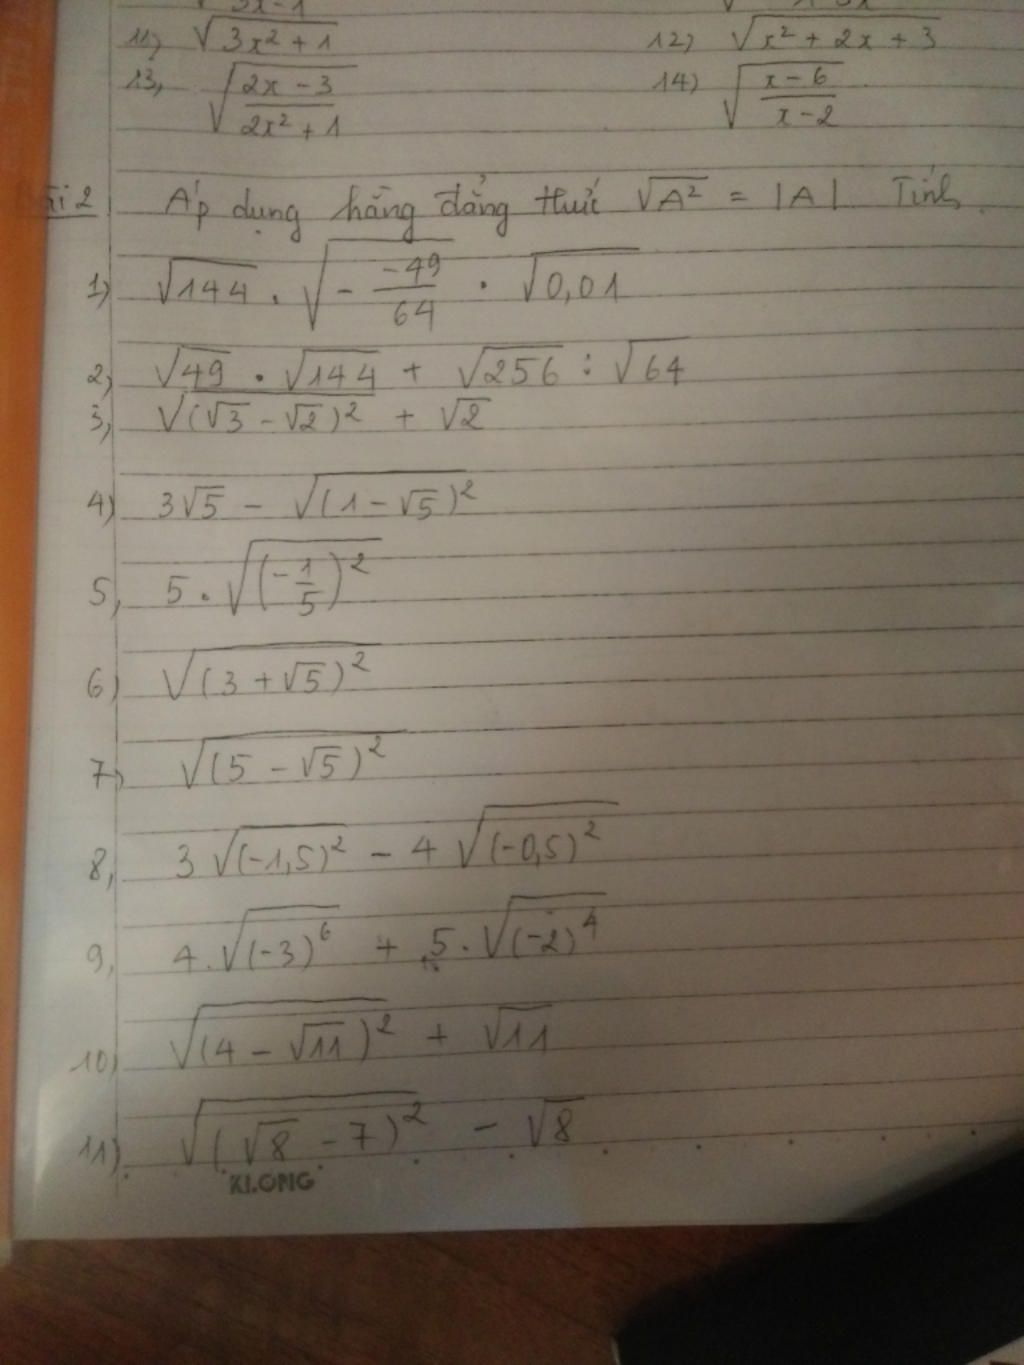 √3x-1
11) √3x² + 1 12) √x² + 2x + 3
13, √(2x - 3)/(2x² + 1) 14) √(x - 6)/(x - 2)
Bài 2 Áp dụng hằng đẳng thức √A² = |A| Tính
1) √144 . √(- -49/64) . √0,01
2) √49 . √144 + √256 : √64
3, √(√3 - √2)² + √2
4) 3√5 - √(1 - √5)²
5, 5 . √(-1/5)²
6) √(3 + √5)²
7) √(5 - √5)²
8, 3√(-1,5)² - 4√(-0,5)²
9, 4.√(-3)⁶ + 5.√(-2)⁴
10) √(4 - √11)² + √11
11) √(√8 - 7)² - √8
KLONG